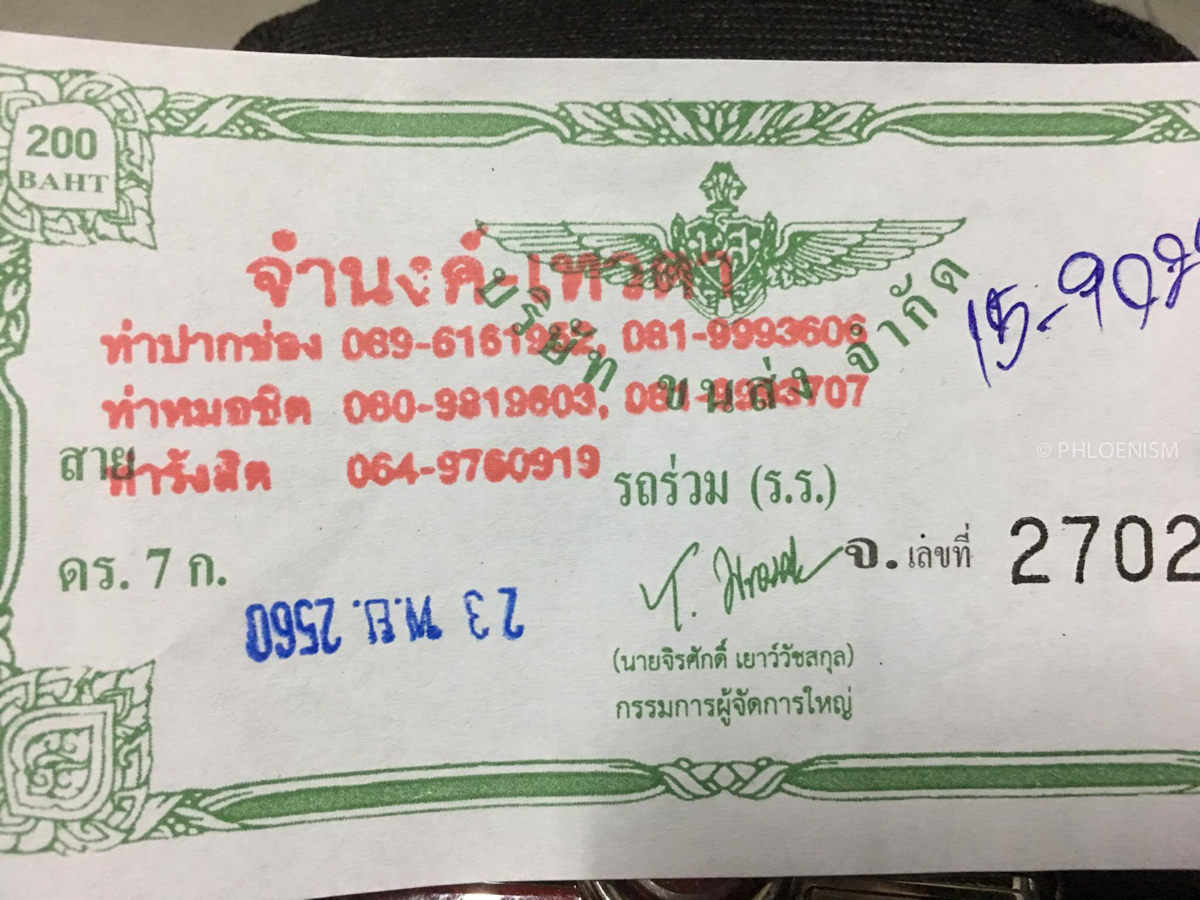 200
BAHT
บริษัท ขนส่ง จำกัด
จำนงค์-เทวดา
ท่าปากช่อง 089-6161952, 081-9993606
ท่าหมอชิต 080-9819603,
สาย
ท่ารังสิต 064-9760919
© PHLOENISM
รถร่วม (ร.ร.)
ดร. 7 ก.
จ. เลขที่ 2702
23 พ.ย. 2560
(นายจิรศักดิ์ เยาว์วัชสกุล)
กรรมการผู้จัดการใหญ่